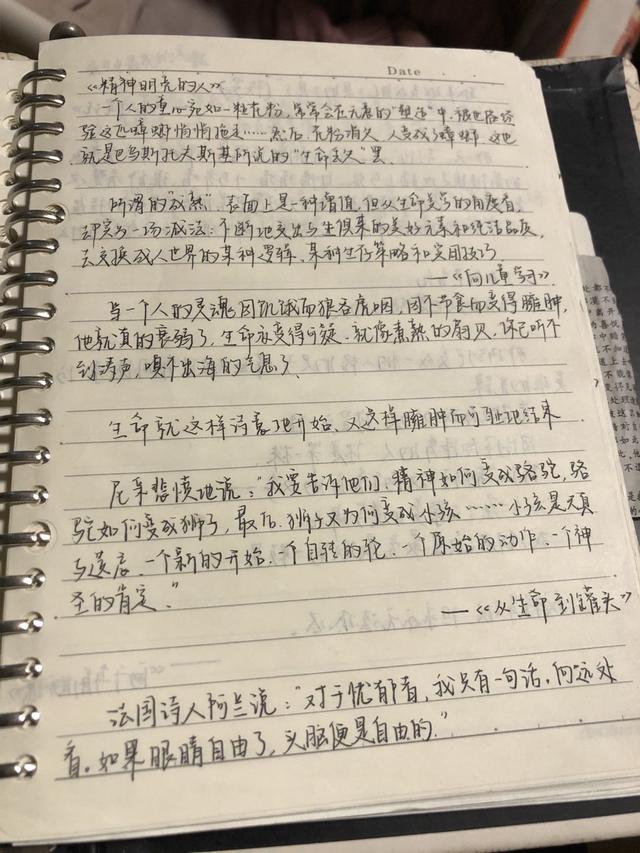 Date
《精神明亮的人》
一个人的童心宛如一粒花粉，常常会在无意的“塑造”中，被世俗经
验这匹蟑螂悄悄拖走……然后，花粉消失，人变成了蟑螂。这也
就是巴乌斯托夫斯基所说的“生命丢失”罢。
所谓的“成熟”，表面上是一种增值，但从生命美学的角度看，
却实为一场减法：不断地交出与生俱来的美好元素和纯洁品质，
去交换成人世界的某种逻辑、某种生存策略和实用技巧。
——《向儿童学习》
当一个人的灵魂因饥饿而狼吞虎咽，因不节食而变得臃肿，
他就真的衰弱了，生命亦变得可疑、就像煮熟的扇贝，你已听不
到涛声，嗅不出海的气息了。
生命就这样诗意地开始，又这样臃肿而可耻地结束
尼采悲愤地说：“我要告诉他们，精神如何变成骆驼，骆
驼如何变成狮子，最后，狮子又为何变成小孩……小孩是天真
与遗忘，一个新的开始、一个自转的轮、一个原始的动作、一个神
圣的肯定。”
——《从生命到罐头》
法国诗人阿兰说：“对于忧郁者，我只有一句话，向远处
看。如果眼睛自由了，头脑便是自由的。”